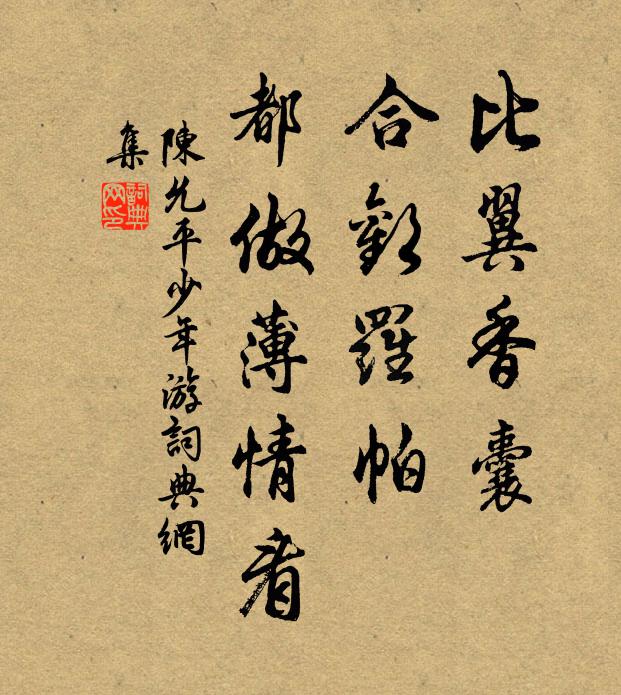 比翼香囊
合歡羅帕
都做薄情看
陳允平少年游詞典網
集
詞典
网印